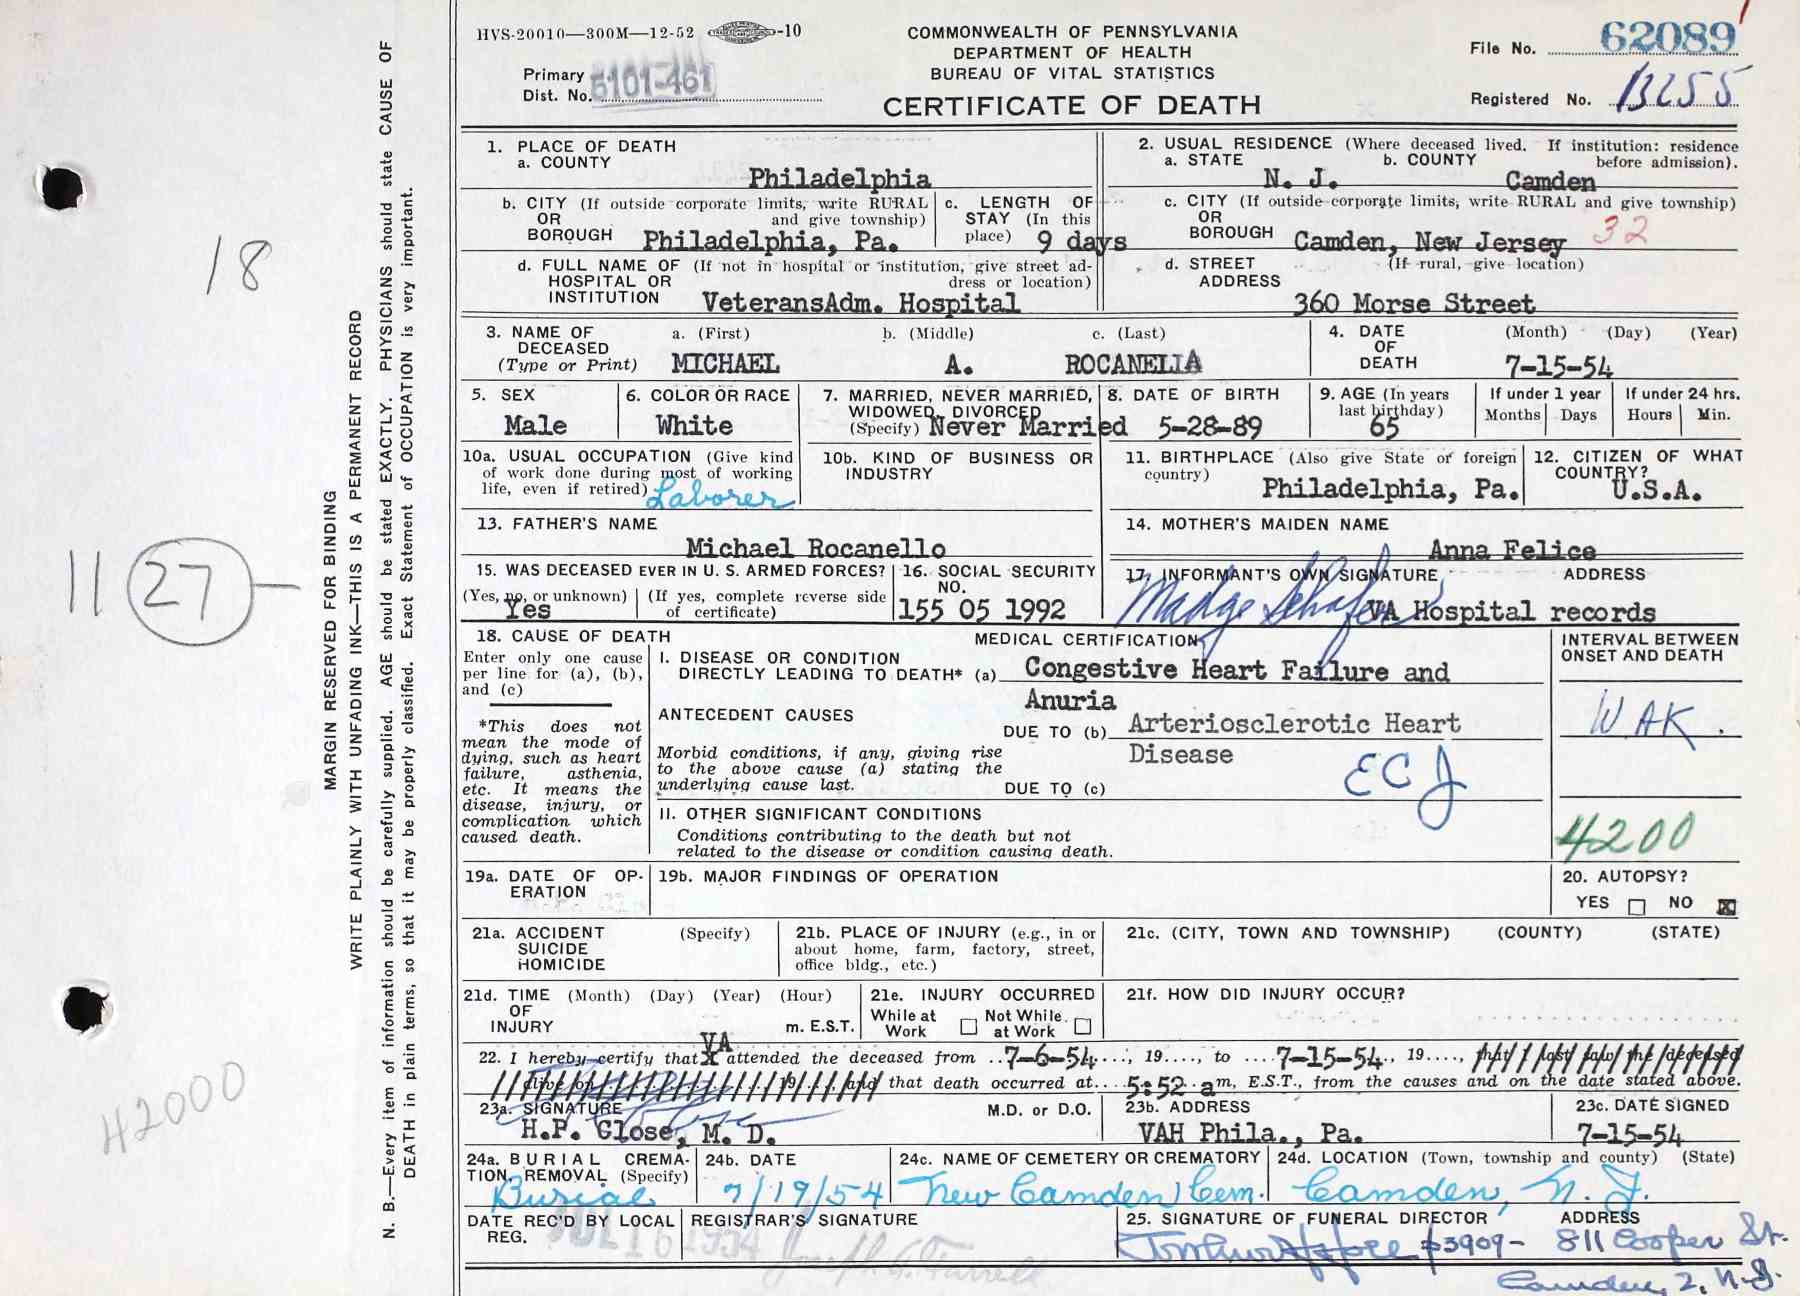 HVS-20010—300M—12-52 -10
COMMONWEALTH OF PENNSYLVANIA
DEPARTMENT OF HEALTH
BUREAU OF VITAL STATISTICS
CERTIFICATE OF DEATH
Primary Dist. No. 5101-461
File No. 62089
Registered No. 13255
MARGIN RESERVED FOR BINDING
WRITE PLAINLY WITH UNFADING INK—THIS IS A PERMANENT RECORD
N. B.—Every item of information should be carefully supplied. AGE should be stated EXACTLY. PHYSICIANS should state CAUSE OF
DEATH in plain terms, so that it may be properly classified. Exact Statement of OCCUPATION is very important.
18
11 27 —
42000
1. PLACE OF DEATH
a. COUNTY
Philadelphia
2. USUAL RESIDENCE (Where deceased lived. If institution: residence
a. STATE b. COUNTY before admission).
N. J. Camden
b. CITY (If outside corporate limits, write RURAL
OR and give township)
BOROUGH Philadelphia, Pa.
c. LENGTH OF
STAY (In this
place) 9 days
c. CITY (If outside corporate limits, write RURAL and give township)
OR
BOROUGH Camden, New Jersey 32
d. FULL NAME OF (If not in hospital or institution, give street ad-
HOSPITAL OR dress or location)
INSTITUTION VeteransAdm. Hospital
d. STREET (If rural, give location)
ADDRESS
360 Morse Street
3. NAME OF a. (First) b. (Middle) c. (Last)
DECEASED
(Type or Print) MICHAEL A. ROCANELIA
4. DATE (Month) (Day) (Year)
OF
DEATH 7-15-54
5. SEX
Male
6. COLOR OR RACE
White
7. MARRIED, NEVER MARRIED,
WIDOWED, DIVORCED
(Specify) Never Married
8. DATE OF BIRTH
5-28-89
9. AGE (In years
last birthday)
65
If under 1 year
Months Days
If under 24 hrs.
Hours Min.
10a. USUAL OCCUPATION (Give kind
of work done during most of working
life, even if retired) Laborer
10b. KIND OF BUSINESS OR
INDUSTRY
11. BIRTHPLACE (Also give State or foreign
country)
Philadelphia, Pa.
12. CITIZEN OF WHAT
COUNTRY?
U.S.A.
13. FATHER'S NAME
Michael Rocanello
14. MOTHER'S MAIDEN NAME
Anna Felice
15. WAS DECEASED EVER IN U. S. ARMED FORCES?
(Yes, no, or unknown) (If yes, complete reverse side
of certificate)
Yes
16. SOCIAL SECURITY
NO.
155 05 1992
17. INFORMANT'S OWN SIGNATURE ADDRESS
Madge Schafer VA Hospital records
18. CAUSE OF DEATH
Enter only one cause
per line for (a), (b),
and (c)
*This does not
mean the mode of
dying, such as heart
failure, asthenia,
etc. It means the
disease, injury, or
complication which
caused death.
MEDICAL CERTIFICATION
I. DISEASE OR CONDITION
DIRECTLY LEADING TO DEATH* (a) Congestive Heart Failure and
Anuria
ANTECEDENT CAUSES
DUE TO (b) Arteriosclerotic Heart
Disease
Morbid conditions, if any, giving rise
to the above cause (a) stating the
underlying cause last.
DUE TO (c)
ECJ
II. OTHER SIGNIFICANT CONDITIONS
Conditions contributing to the death but not
related to the disease or condition causing death.
INTERVAL BETWEEN
ONSET AND DEATH
WAK.
4200
19a. DATE OF OP-
ERATION
19b. MAJOR FINDINGS OF OPERATION
20. AUTOPSY?
YES NO X
21a. ACCIDENT (Specify)
SUICIDE
HOMICIDE
21b. PLACE OF INJURY (e.g., in or
about home, farm, factory, street,
office bldg., etc.)
21c. (CITY, TOWN AND TOWNSHIP) (COUNTY) (STATE)
21d. TIME (Month) (Day) (Year) (Hour)
OF
INJURY m. E.S.T.
21e. INJURY OCCURRED
While at Work Not While at Work
21f. HOW DID INJURY OCCUR?
VA
22. I hereby certify that X attended the deceased from 7-6-54, 19...., to 7-15-54, 19...., that I last saw the deceased
alive on 19...., and that death occurred at 5:52 am, E.S.T., from the causes and on the date stated above.
23a. SIGNATURE M.D. or D.O.
H.P. Close, M. D.
23b. ADDRESS
VAH Phila., Pa.
23c. DATE SIGNED
7-15-54
24a. BURIAL CREMA-
TION, REMOVAL (Specify)
Burial
24b. DATE
7/19/54
24c. NAME OF CEMETERY OR CREMATORY
New Camden Cem.
24d. LOCATION (Town, township and county) (State)
Camden, N. J.
DATE REC'D BY LOCAL
REG.
JUL 16 1954
REGISTRAR'S SIGNATURE
Joseph A. Farrell
25. SIGNATURE OF FUNERAL DIRECTOR ADDRESS
#3909- 811 Cooper St.
Camden, 2, N.J.